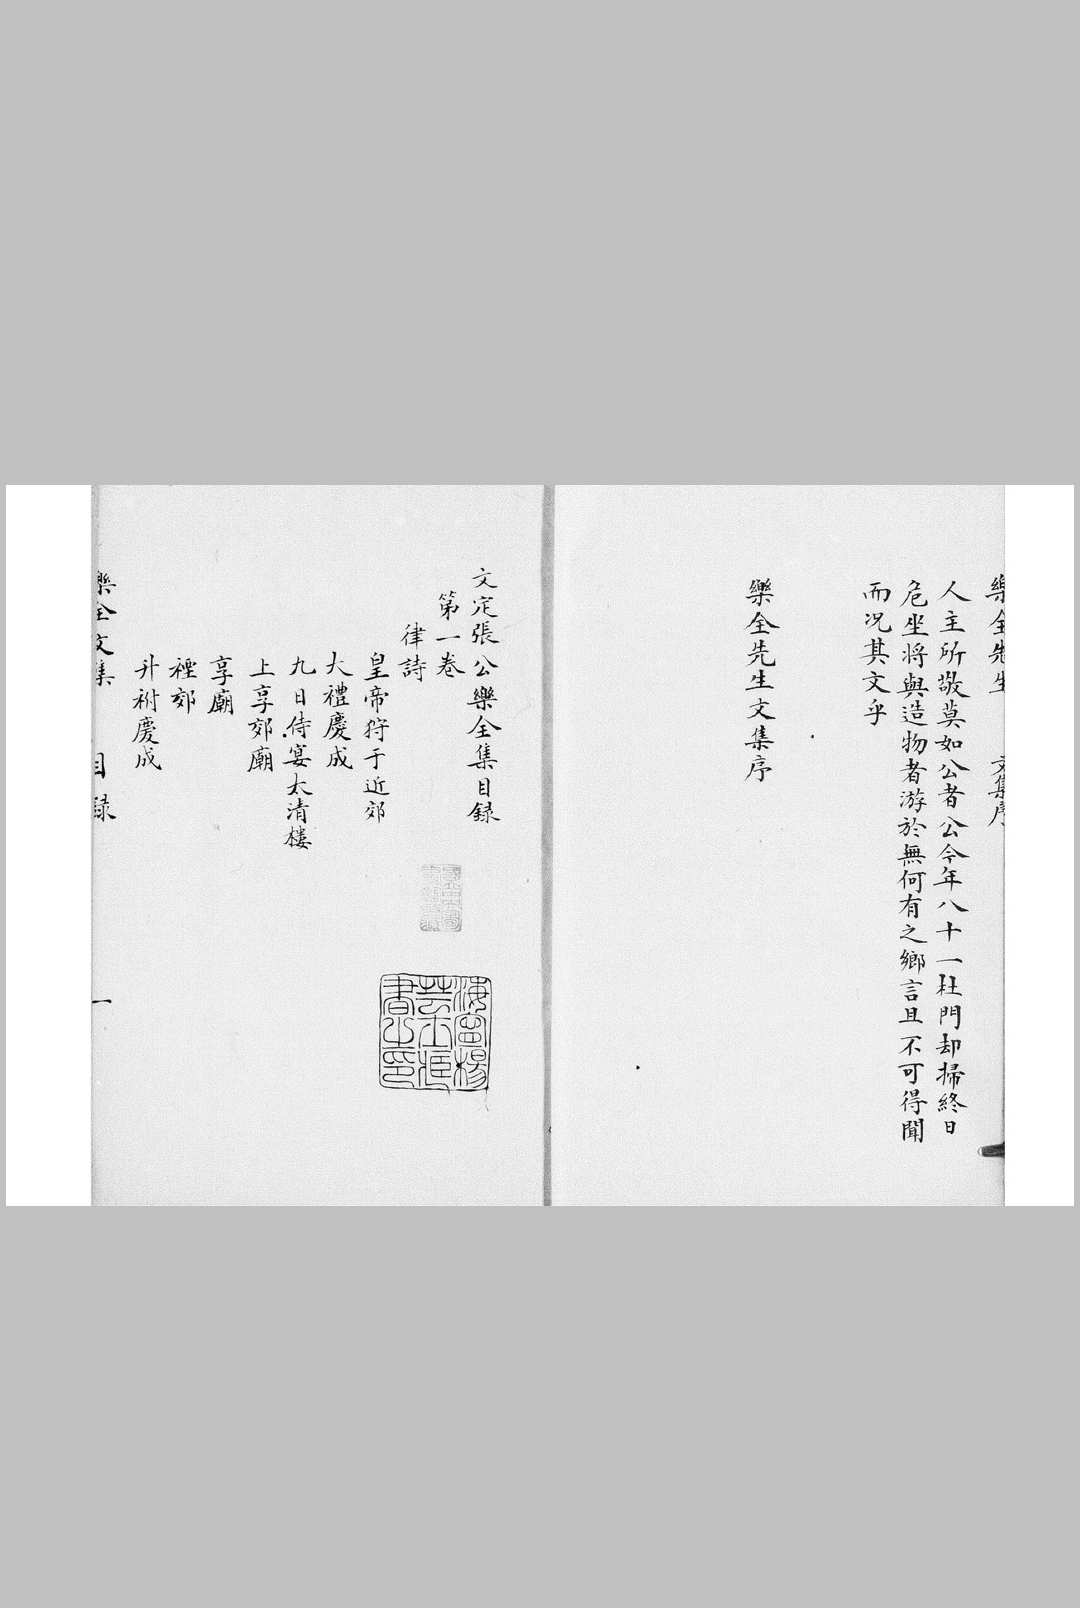 樂全先生 文集序
人主所敬莫如公者公今年八十一杜門却掃終日
危坐將與造物者游於無何有之鄉言且不可得聞
而况其文乎
樂全先生文集序
文定張公樂全集目録
第一卷
律詩
皇帝狩于近郊
大禮慶成
九日侍宴太清樓
上享郊廟
享廟
禋郊
升祔慶成
樂全文集 目録 一
海寧楊
芸士臧
書之印